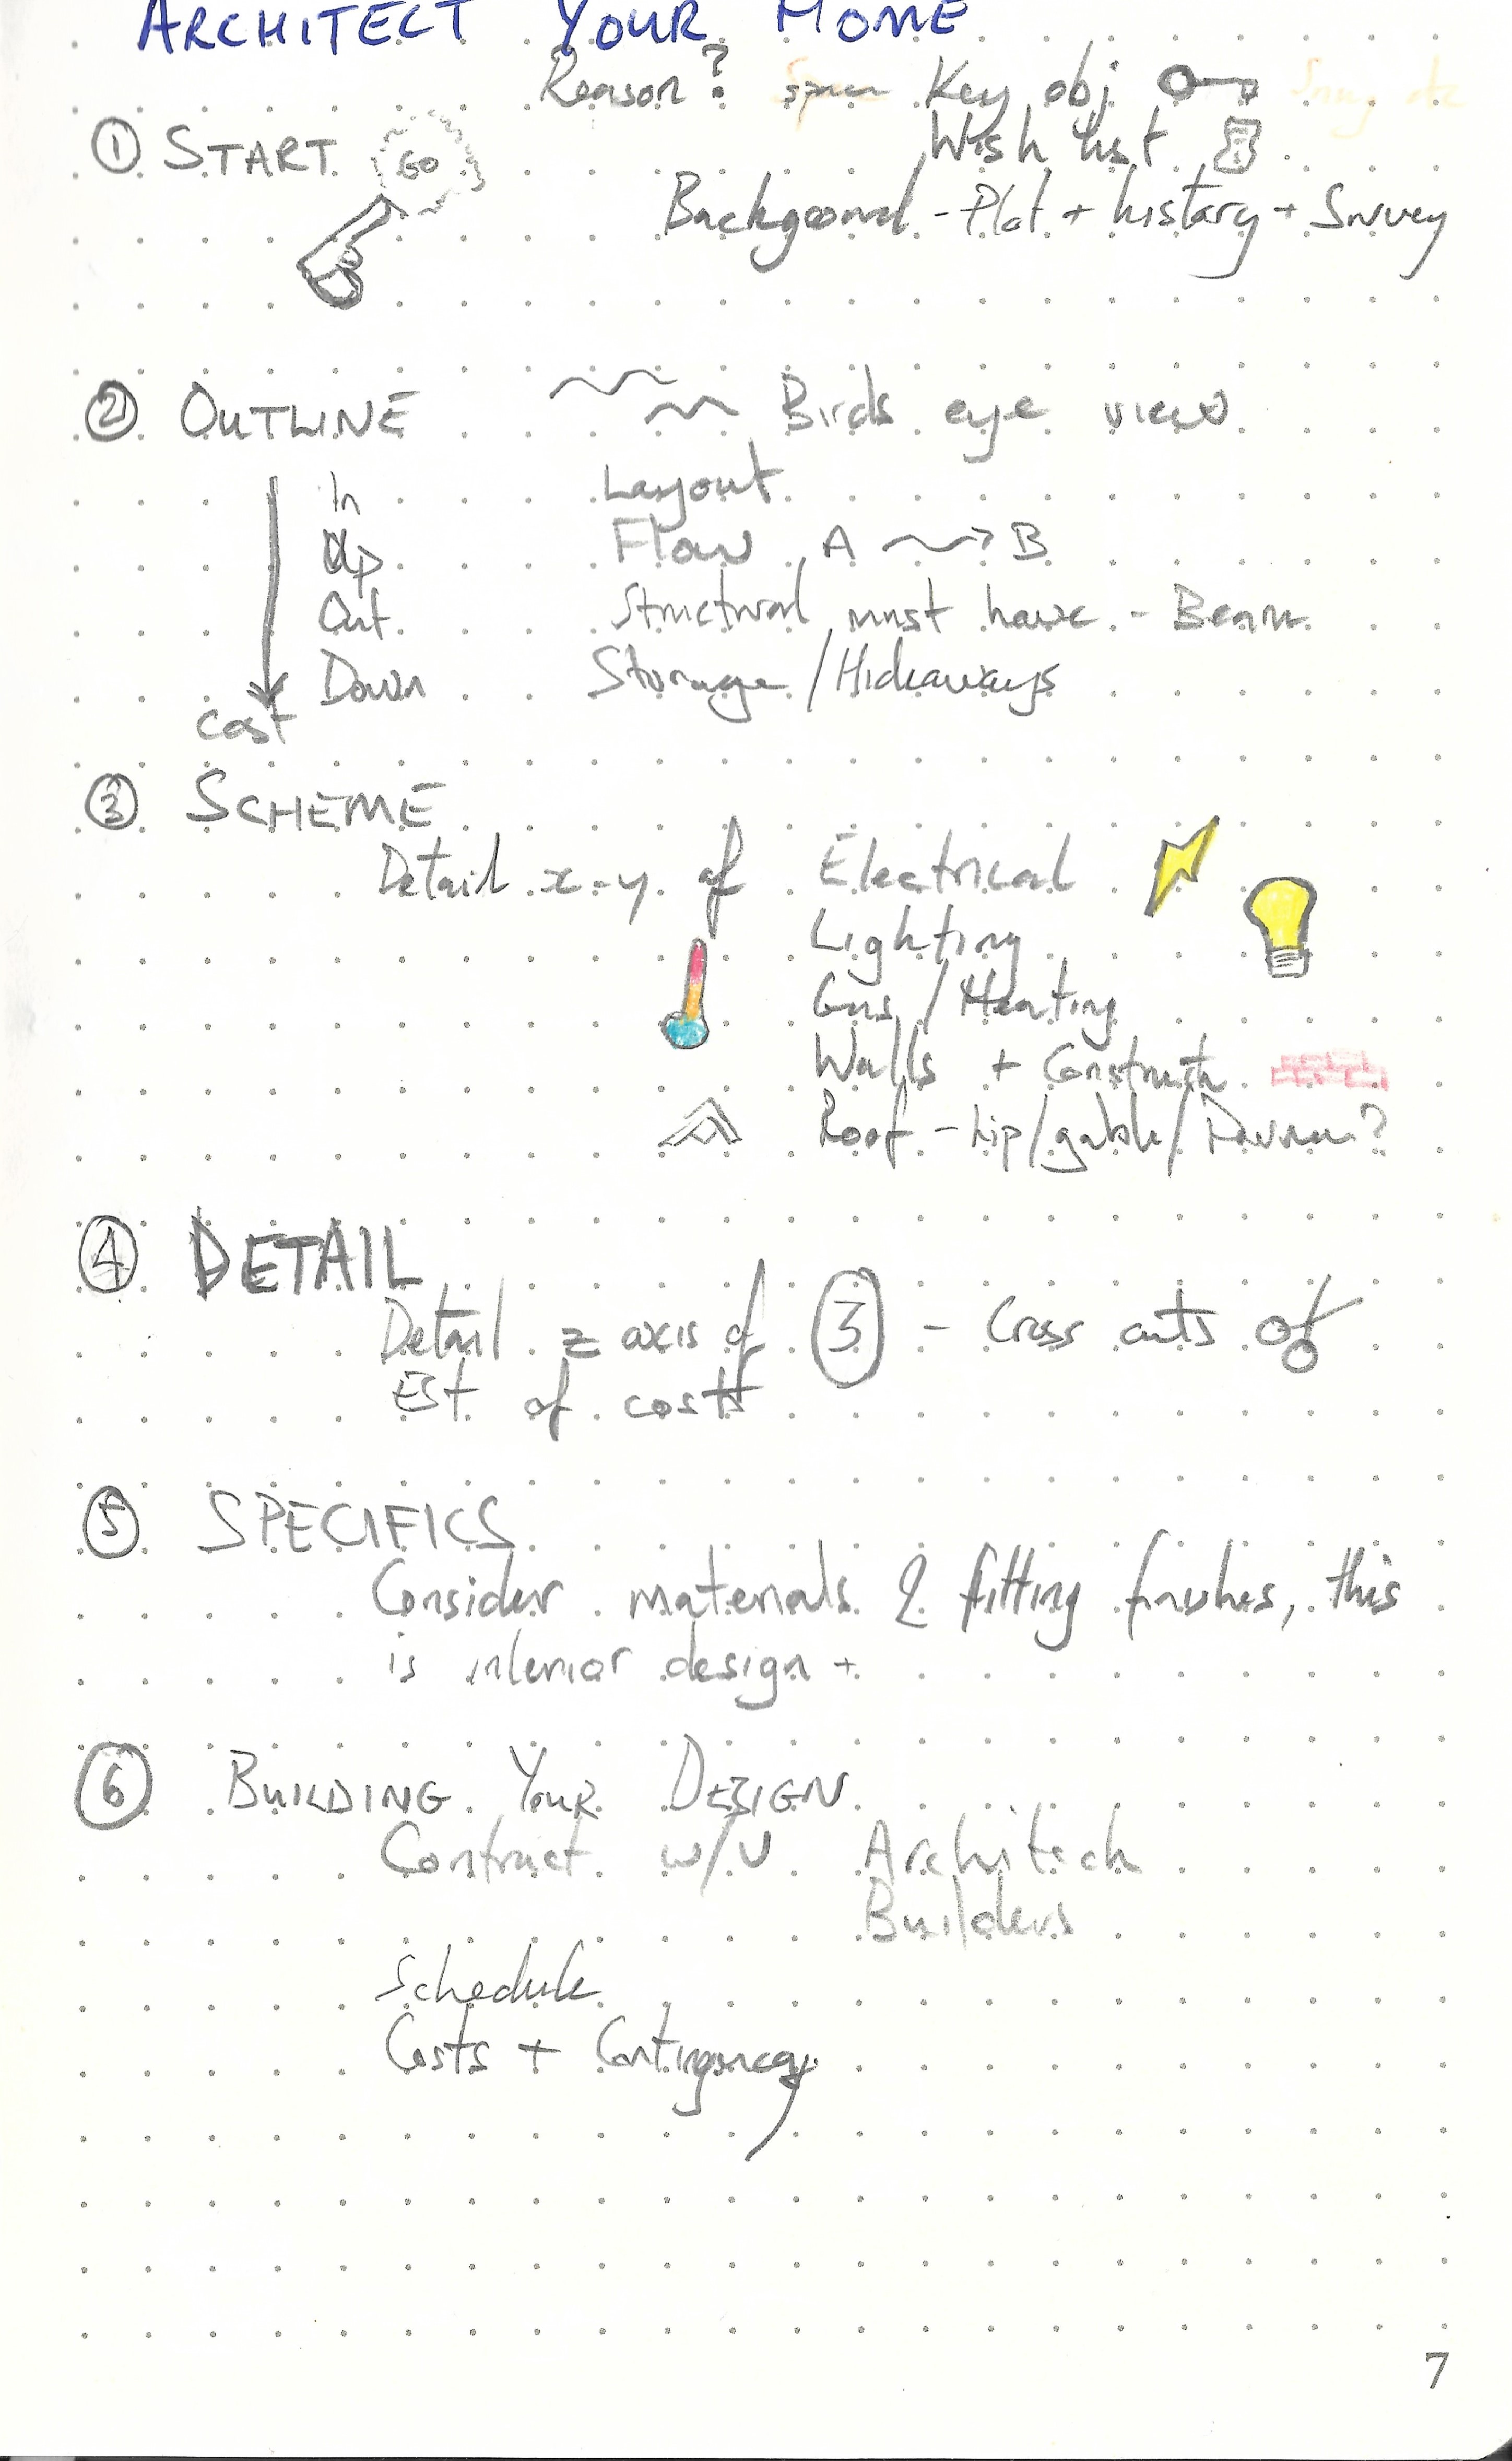 ARCHITECT YOUR HOME
Reason? Key obj
① START GO Wish list
Background - Plot + history + Survey
② OUTLINE Birds eye view
In Layout
Up Flow A B
Out Structural must have - Beam
Down Storage / Hideaways
Cost
③ SCHEME
Detail x-y of Electrical
Lighting
Gas / Heating
Walls + Construct
Roof - hip/gable/ ?
④ DETAIL
Detail z axis of ③ - Cross cuts
Est of costs
⑤ SPECIFICS
Consider materials & fitting finishes, this
is interior design +
⑥ BUILDING YOUR DESIGN
Contract w/ Architect
Builders
Schedule
Costs + Contingency
7